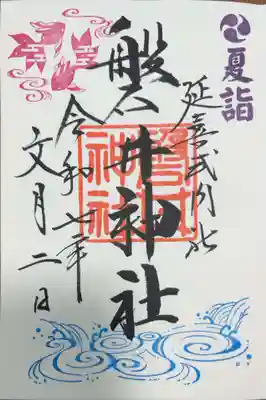 夏詣
延喜式内社
磐井神社
令和七年
文月二日